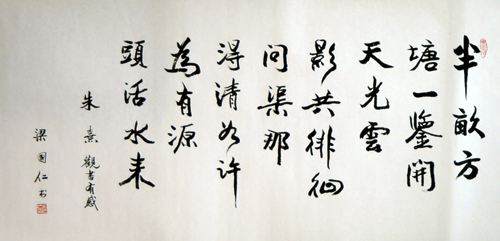 半畝方
塘一鑒開
天光雲
影共徘徊
問渠那
得清如許
為有源
頭活水来
朱熹觀書有感
梁國仁書